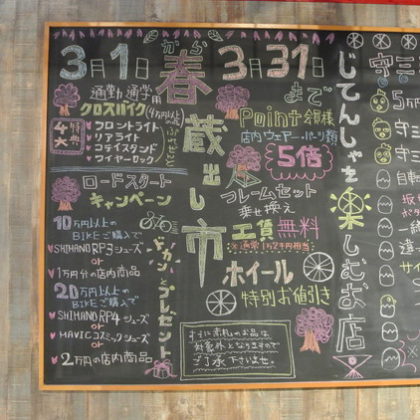 3月1日から3月31日まで
春
蔵出し市
通勤通学用
クロスバイク
4大特典
フロントライト
リアライト
コテイスタンド
ワイヤーロック
ロードスタート
キャンペーン
10万円以上の
BIKEご購入で
SHIMANO RP3シューズ
or
1万円分の店内商品
20万円以上の
BIKEご購入で
SHIMANO RP4シューズ
or
MAVICコスミックシューズ
or
2万円の店内商品
ドカンとプレゼント
Point金額様
店内ウェアー・パーツ類
5倍
フレームセット
乗せ換え
工賃無料
※通常1万2千円相当
ホイール
特別お値引き
すでに赤札のお品は
対象外となりますので
ご了承下さいませ。
じてんしゃを楽しむお店
守三